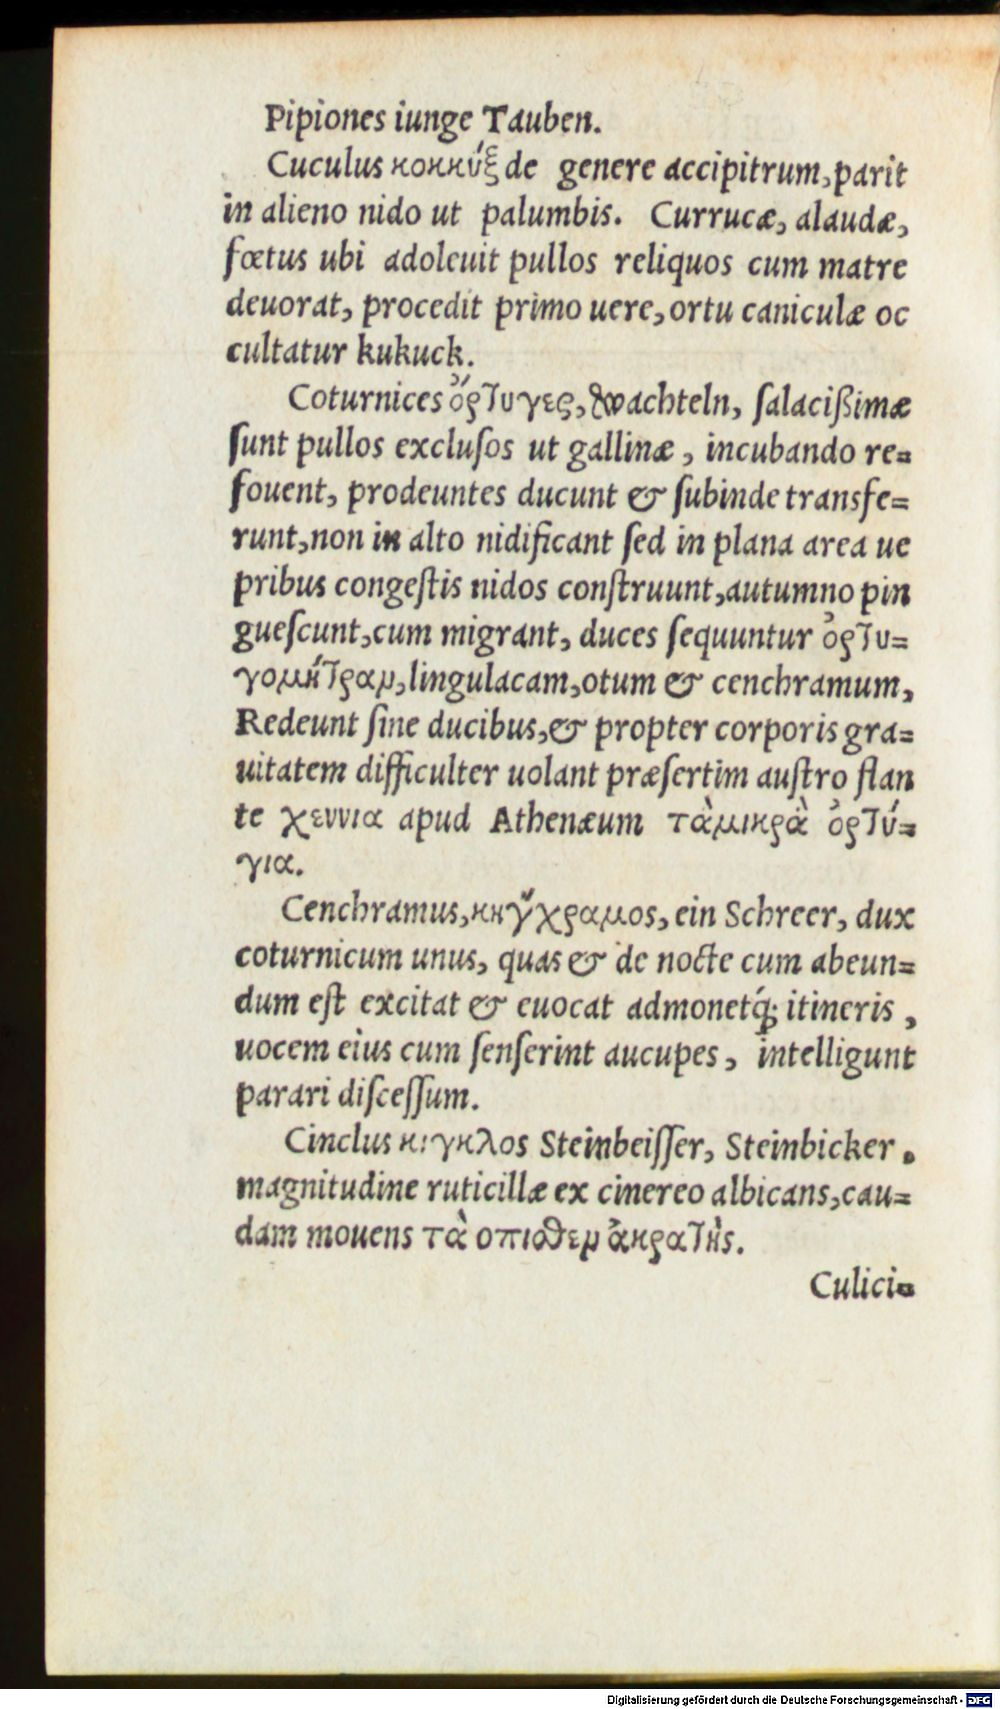 Pipiones iunge Tauben.
Cuculus κοκκύξ de genere accipitrum, parit
in alieno nido ut palumbis. Currucæ, alaudæ,
fœtus ubi adoleuit pullos reliquos cum matre
deuorat, procedit primo uere, ortu caniculæ oc
cultatur kukuck.
Coturnices ὄρτυγες, Wachteln, ſalacißimæ
ſunt pullos excluſos ut gallinæ, incubando re=
fouent, prodeuntes ducunt & ſubinde transfe=
runt, non in alto nidificant ſed in plana area ue
pribus congeſtis nidos conſtruunt, autumno pin
gueſcunt, cum migrant, duces ſequuntur ὀρτυ=
γομήτραμ, lingulacam, otum & cenchramum,
Redeunt ſine ducibus, & propter corporis gra=
uitatem difficulter uolant præſertim auſtro flan
te χεννια apud Athenæum τὰ μικρὰ ὀρτύ=
για.
Cenchramus, κήγχραμος, ein Schreer, dux
coturnicum unus, quas & de nocte cum abeun=
dum eſt excitat & euocat admonetq́; itineris,
uocem eius cum ſenſerint aucupes, intelligunt
parari diſceſſum.
Cinclus κίγκλος Steinbeiſſer, Steinbicker.
magnitudine ruticillæ ex cinereo albicans, cau=
dam mouens τὰ οπισθεμ ἀκρατὴς.
Culici=
Digitalisierung gefördert durch die Deutsche Forschungsgemeinschaft - DFG